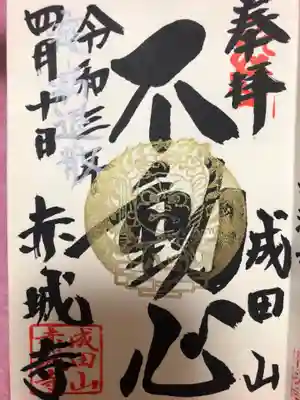 奉拝
成田山
不動心
令和三年
四月十日
赤城寺
成田山
赤城寺